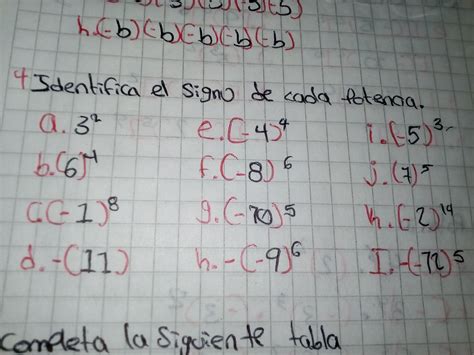 (-5)(-5)
h.(-b)(-b)(-b)(-b)(-b)
4 Identifica el signo de cada potencia.
a. 3² e. (-4)⁴ i. (-5)³
b. (6)⁴ f. (-8)⁶ j. (7)⁵
c. (-1)⁸ g. (-70)⁵ k. (-2)¹⁴
d. -(11) h. -(-9)⁶ I. -(-72)⁵
completa la siguiente tabla